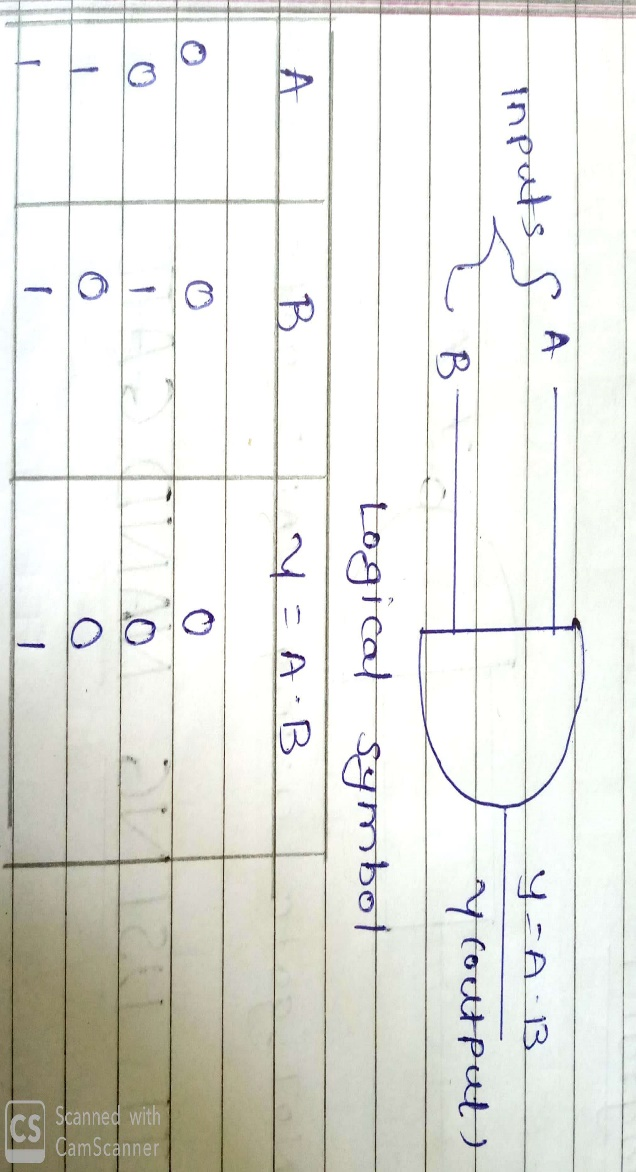 A
y = A·B
Inputs
B
y (output)
Logical Symbol
A B y = A·B
0 0 0
0 1 0
1 0 0
1 1 1
CS Scanned with
CamScanner